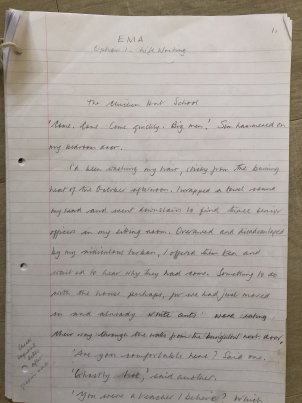 1.
EMA
Option 1 - Life Writing
The Chicken Hut School
'Come. Come. Come quickly. Big men.' Son hammered on
my bedroom door.
I'd been washing my hair, sticky from the burning
heat of the October afternoon. I wrapped a towel round
my head and went downstairs to find three senior
officers in my sitting room. Overawed and disadvantaged
by my ridiculous turban, I offered them tea and
waited to hear why they had come. Something to do
with the house perhaps, for we had just moved
in and already white ants were eating
their way through the walls from the bungalow next door.
'Are you comfortable here? Said one.
'Ghastly hot', said another.
'You were a teacher I believe? Which